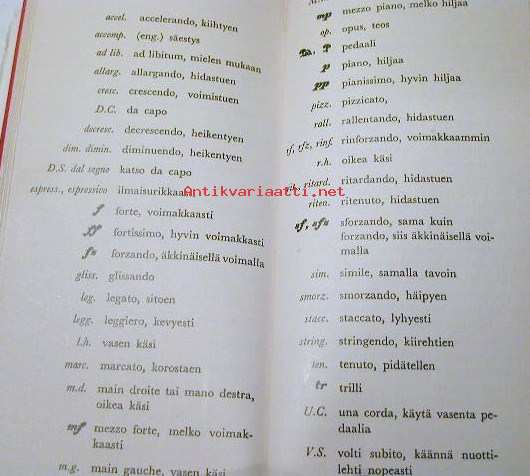 accel. accelerando, kiihtyen
accomp. (eng.) säestys
ad lib. ad libitum, mielen mukaan
allarg. allargando, hidastuen
cresc. crescendo, voimistuen
D.C. da capo
decresc. decrescendo, heikentyen
dim. dimin. diminuendo, heikentyen
D.S. dal segno katso da capo
espress., espressivo ilmaisurikkaasti
f forte, voimakkaasti
ff fortissimo, hyvin voimakkaasti
fz forzando, äkkinäisellä voimalla
gliss. glissando
leg. legato, sitoen
legg. leggiero, kevyesti
l.h. vasen käsi
marc. marcato, korostaen
m.d. main droite tai mano destra,
oikea käsi
mf mezzo forte, melko voimak-
kaasti
m.g. main gauche, vasen käsi
mp mezzo piano, melko hiljaa
op. opus, teos
pedaali
p piano, hiljaa
pp pianissimo, hyvin hiljaa
pizz. pizzicato,
rall. rallentando, hidastuen
rf, rfz, rinf. rinforzando, voimakkaammin
r.h. oikea käsi
rit. ritard. ritardando, hidastuen
riten. ritenuto, hidastuen
sf, sfz sforzando, sama kuin
forzando, siis äkkinäisellä voi-
malla
sim. simile, samalla tavoin
smorz. smorzando, häipyen
stacc. staccato, lyhyesti
string. stringendo, kiirehtien
ten. tenuto, pidätellen
tr trilli
U.C. una corda, käytä vasenta pe-
daalia
V.S. volti subito, käännä nuotti-
lehti nopeasti
Antikvariaatti.net